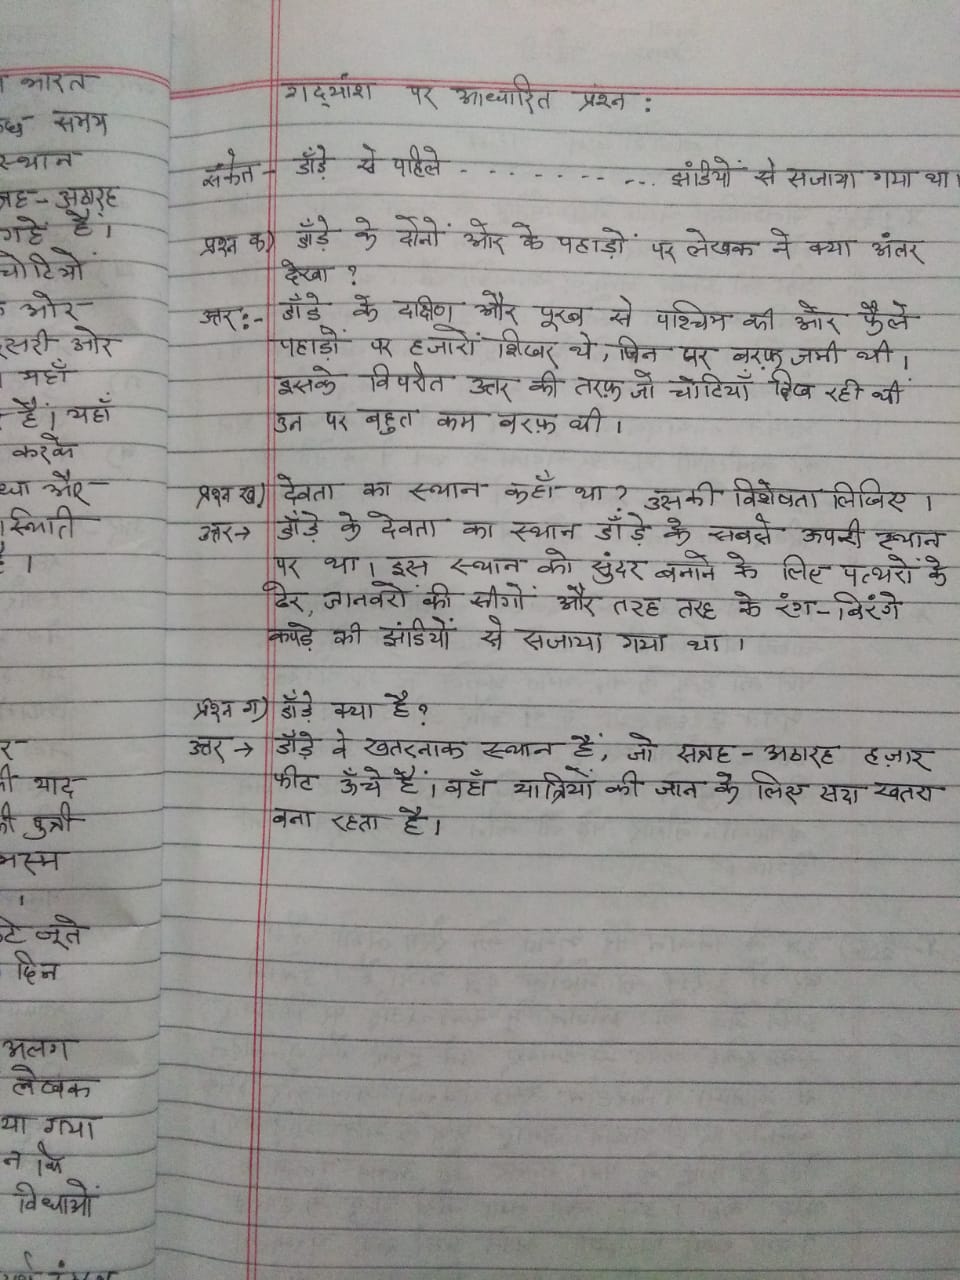 भारत
समय
स्थान
अठारह
गहे हैं।
चोटियों
ओर
दूसरी ओर
यहाँ
हैं। यहाँ
करके
था और
स्थिति
है।
की याद
की पुत्री
भस्म
।
जूते
दिन
अलग
लेखक
या गया
न कि
विधाओं
गद्यांश पर आधारित प्रश्न :
संकेत - डाँड़े से पहिले - - - - - - - - - - ... झंडियों से सजाया गया था।
प्रश्न क) डाँड़े के दोनों ओर के पहाड़ों पर लेखक ने क्या अंतर
देखा ?
उत्तर:- डाँड़े के दक्षिण और पूरब से पश्चिम की ओर फैले
पहाड़ों पर हजारों शिखर थे, जिन पर बरफ़ जमी थी।
इसके विपरीत उत्तर की तरफ़ जो चोटियाँ दिख रही थीं
उन पर बहुत कम बरफ़ थी।
प्रश्न ख) देवता का स्थान कहाँ था? उसकी विशेषता लिखिए।
उत्तर→ डाँड़े के देवता का स्थान डाँड़े के सबसे ऊपरी स्थान
पर था। इस स्थान को सुंदर बनाने के लिए पत्थरों के
ढेर, जानवरों की सींगों और तरह तरह के रंग-बिरंगे
कपड़े की झंडियों से सजाया गया था।
प्रश्न ग) डाँड़े क्या है?
उत्तर → डाँड़े वे खतरनाक स्थान हैं, जो सत्रह-अठारह हज़ार
फीट ऊँचे हैं। वहाँ यात्रियों की जान के लिए सदा खतरा
बना रहता है।